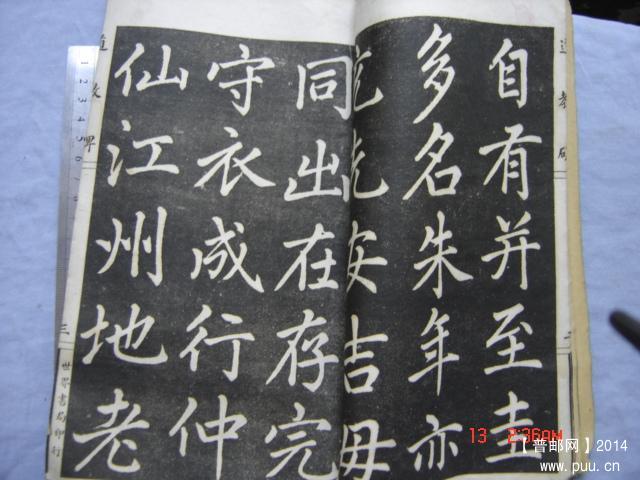 道教碑
二
自有并至圭
多名朱年亦
安吉毋
同出在存完
守衣成行仲
仙江州地老
道教碑
三
世界書局印行
13 2:36AM
【普邮网】2014
www.puu.cn